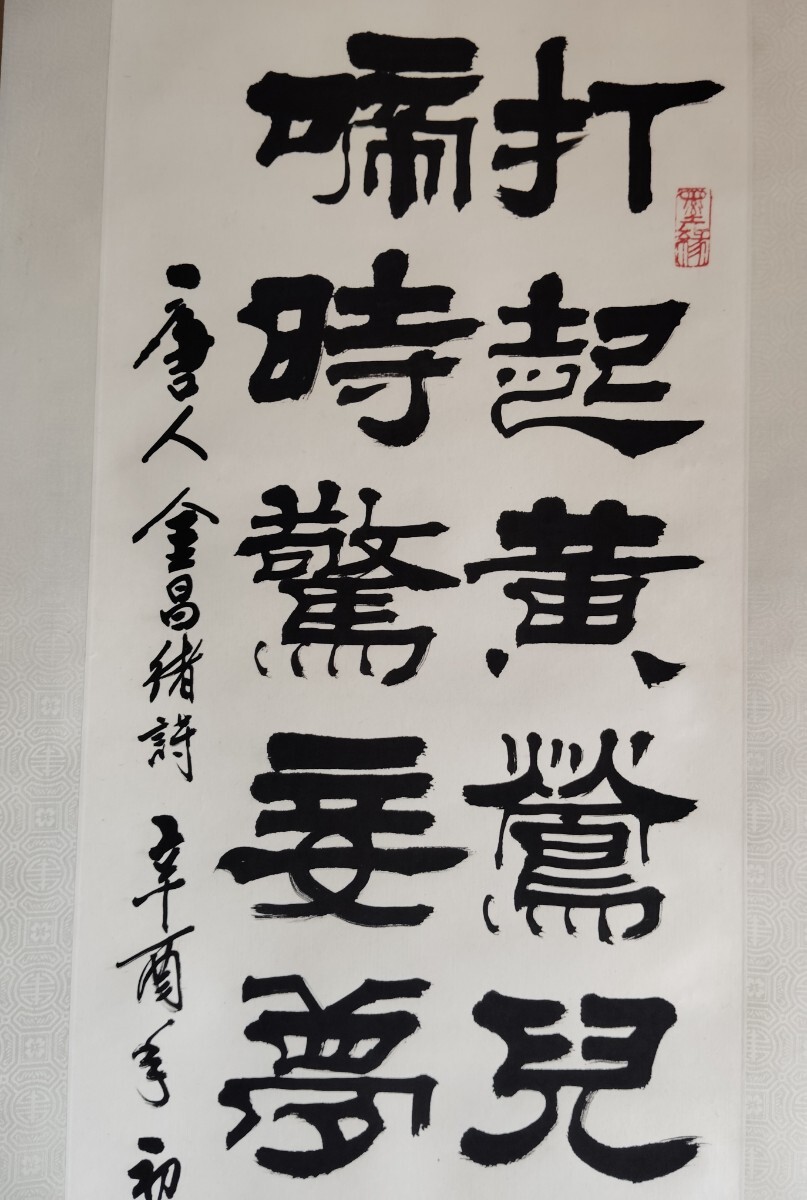 打起黃鶯兒
啼時驚妾夢
唐人金昌緒詩 辛酉年初
墨緣